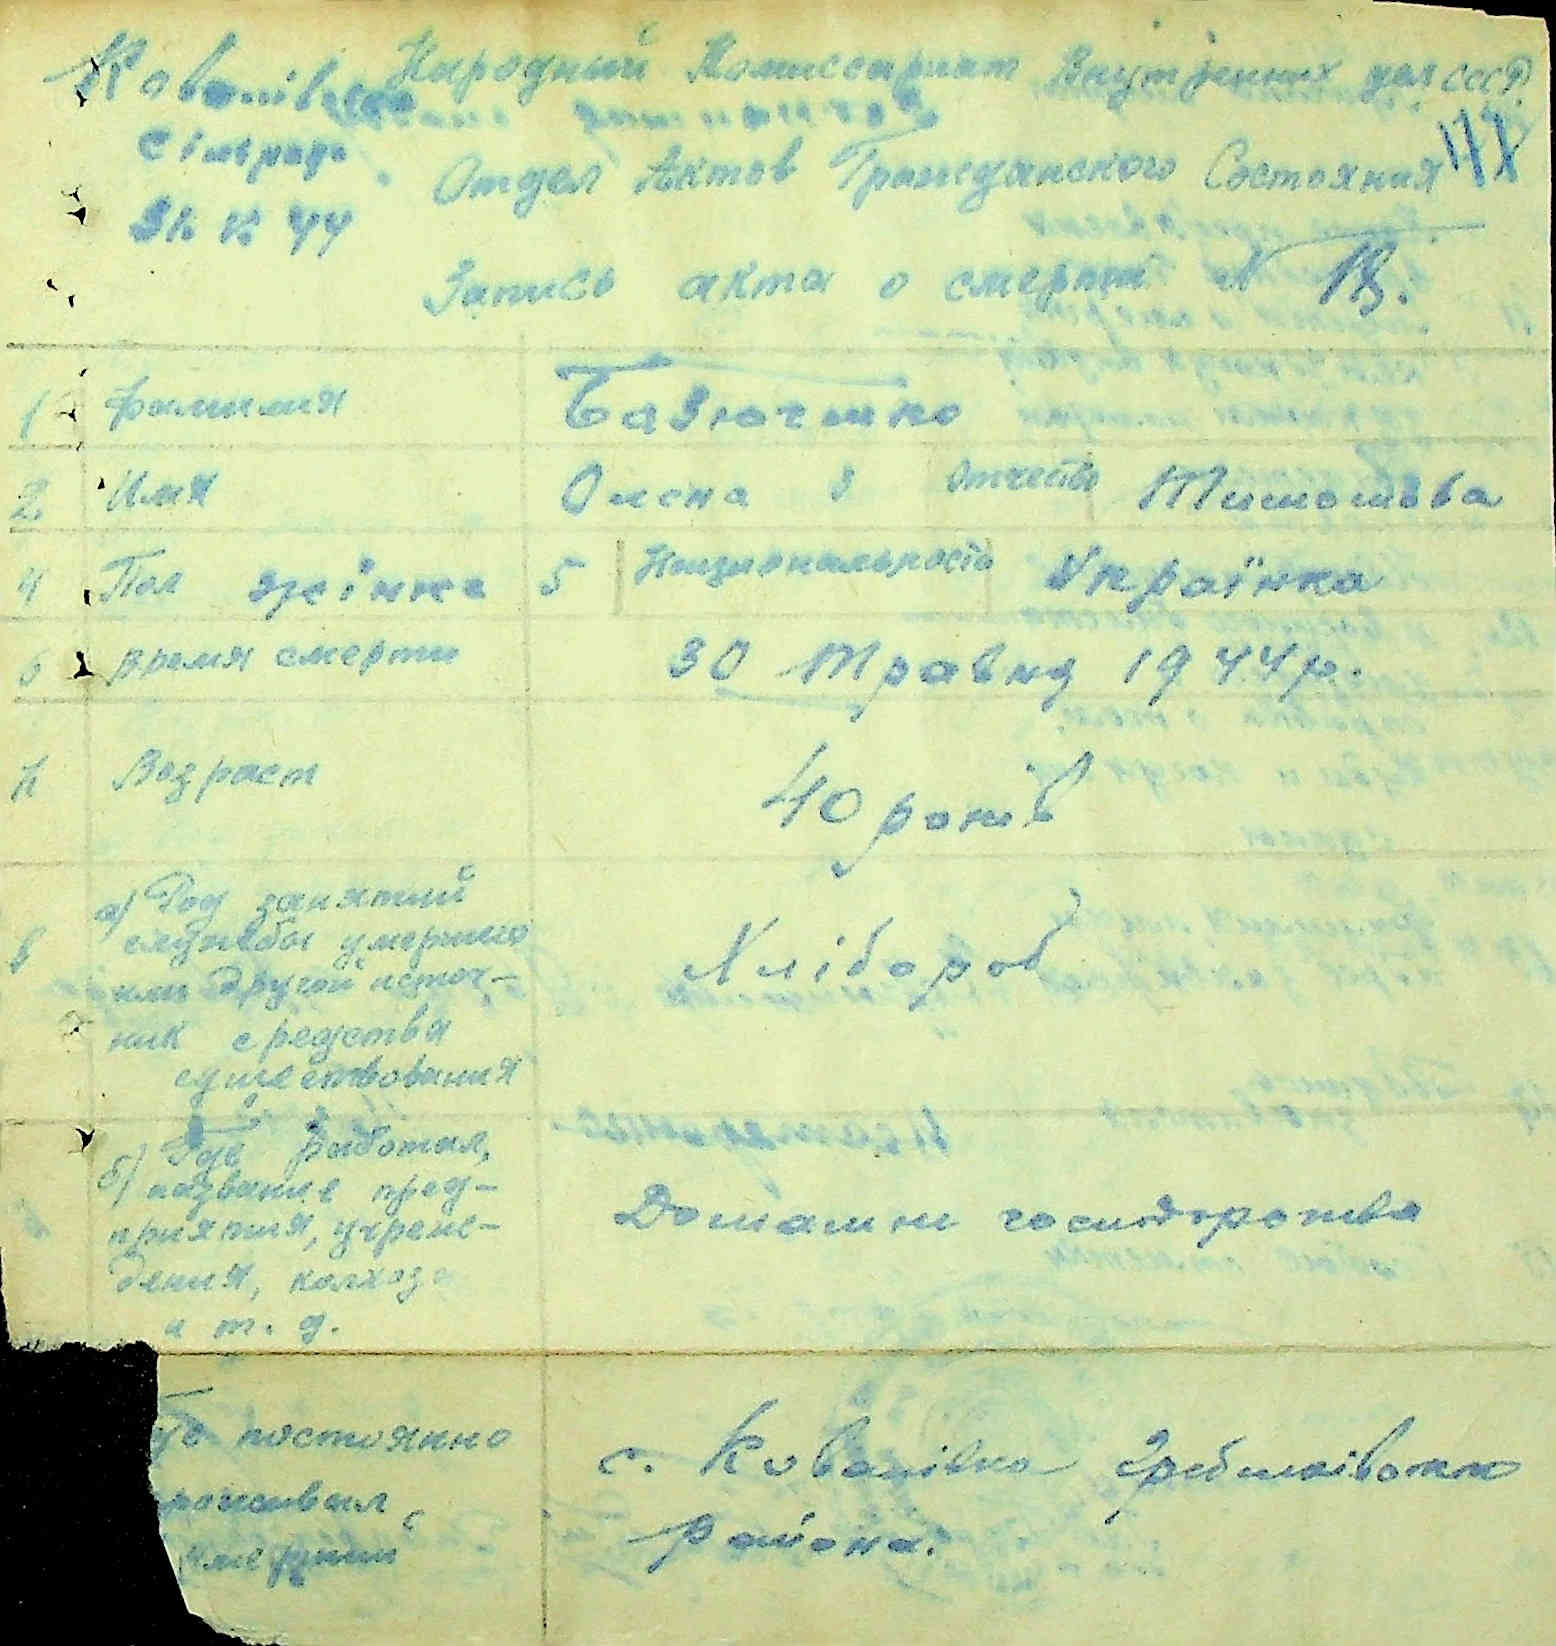 Ковалівська
Сільрада
Народный Комиссариат Внутренних дел СССР.
Отдел Актов Гражданского Состояния
Запись акта о смерти N 18.
1 Фамилия Базюченко
2. Имя Олена 3 Отчество Тимошова
4 Пол жінка 5 Национальность Українка
6 Время смерти 30 Травня 1944 р.
7 Возраст 40 років
8 а) Род занятий
службы умершего
или другой источ-
ник средства
существования
Хлібороб
б) Где работал,
название пред-
приятия, учреж-
дения, колхоза
и т. д.
Домашнє господарство
постоянно
с. Ковалівка Гребінківського
района.